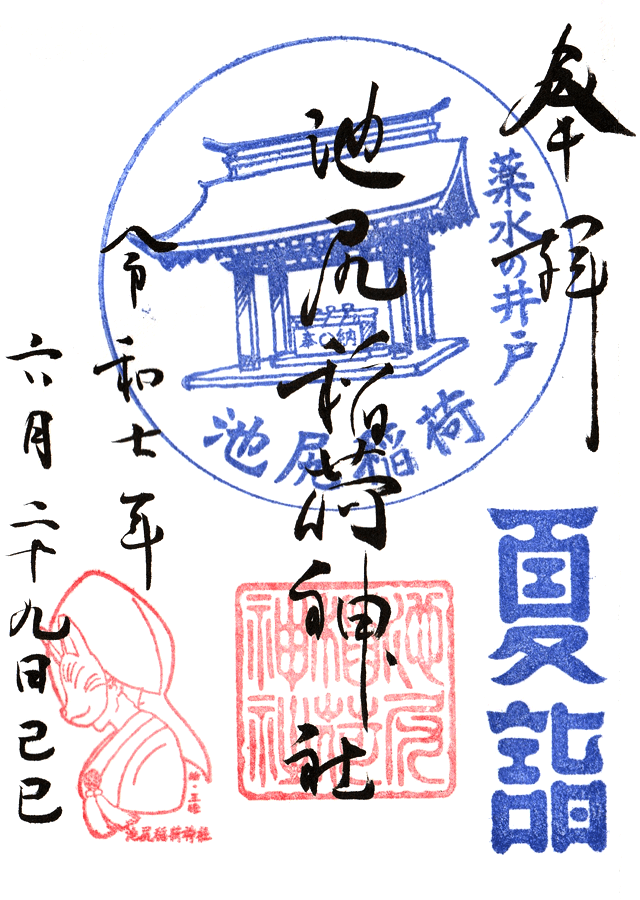 奉拝
薬水の井戸
夏詣
池尻稲荷神社
奉納
池尻稲荷
池尻
稲荷
神社
令和七年
六月二十九日己巳
池尻稲荷神社